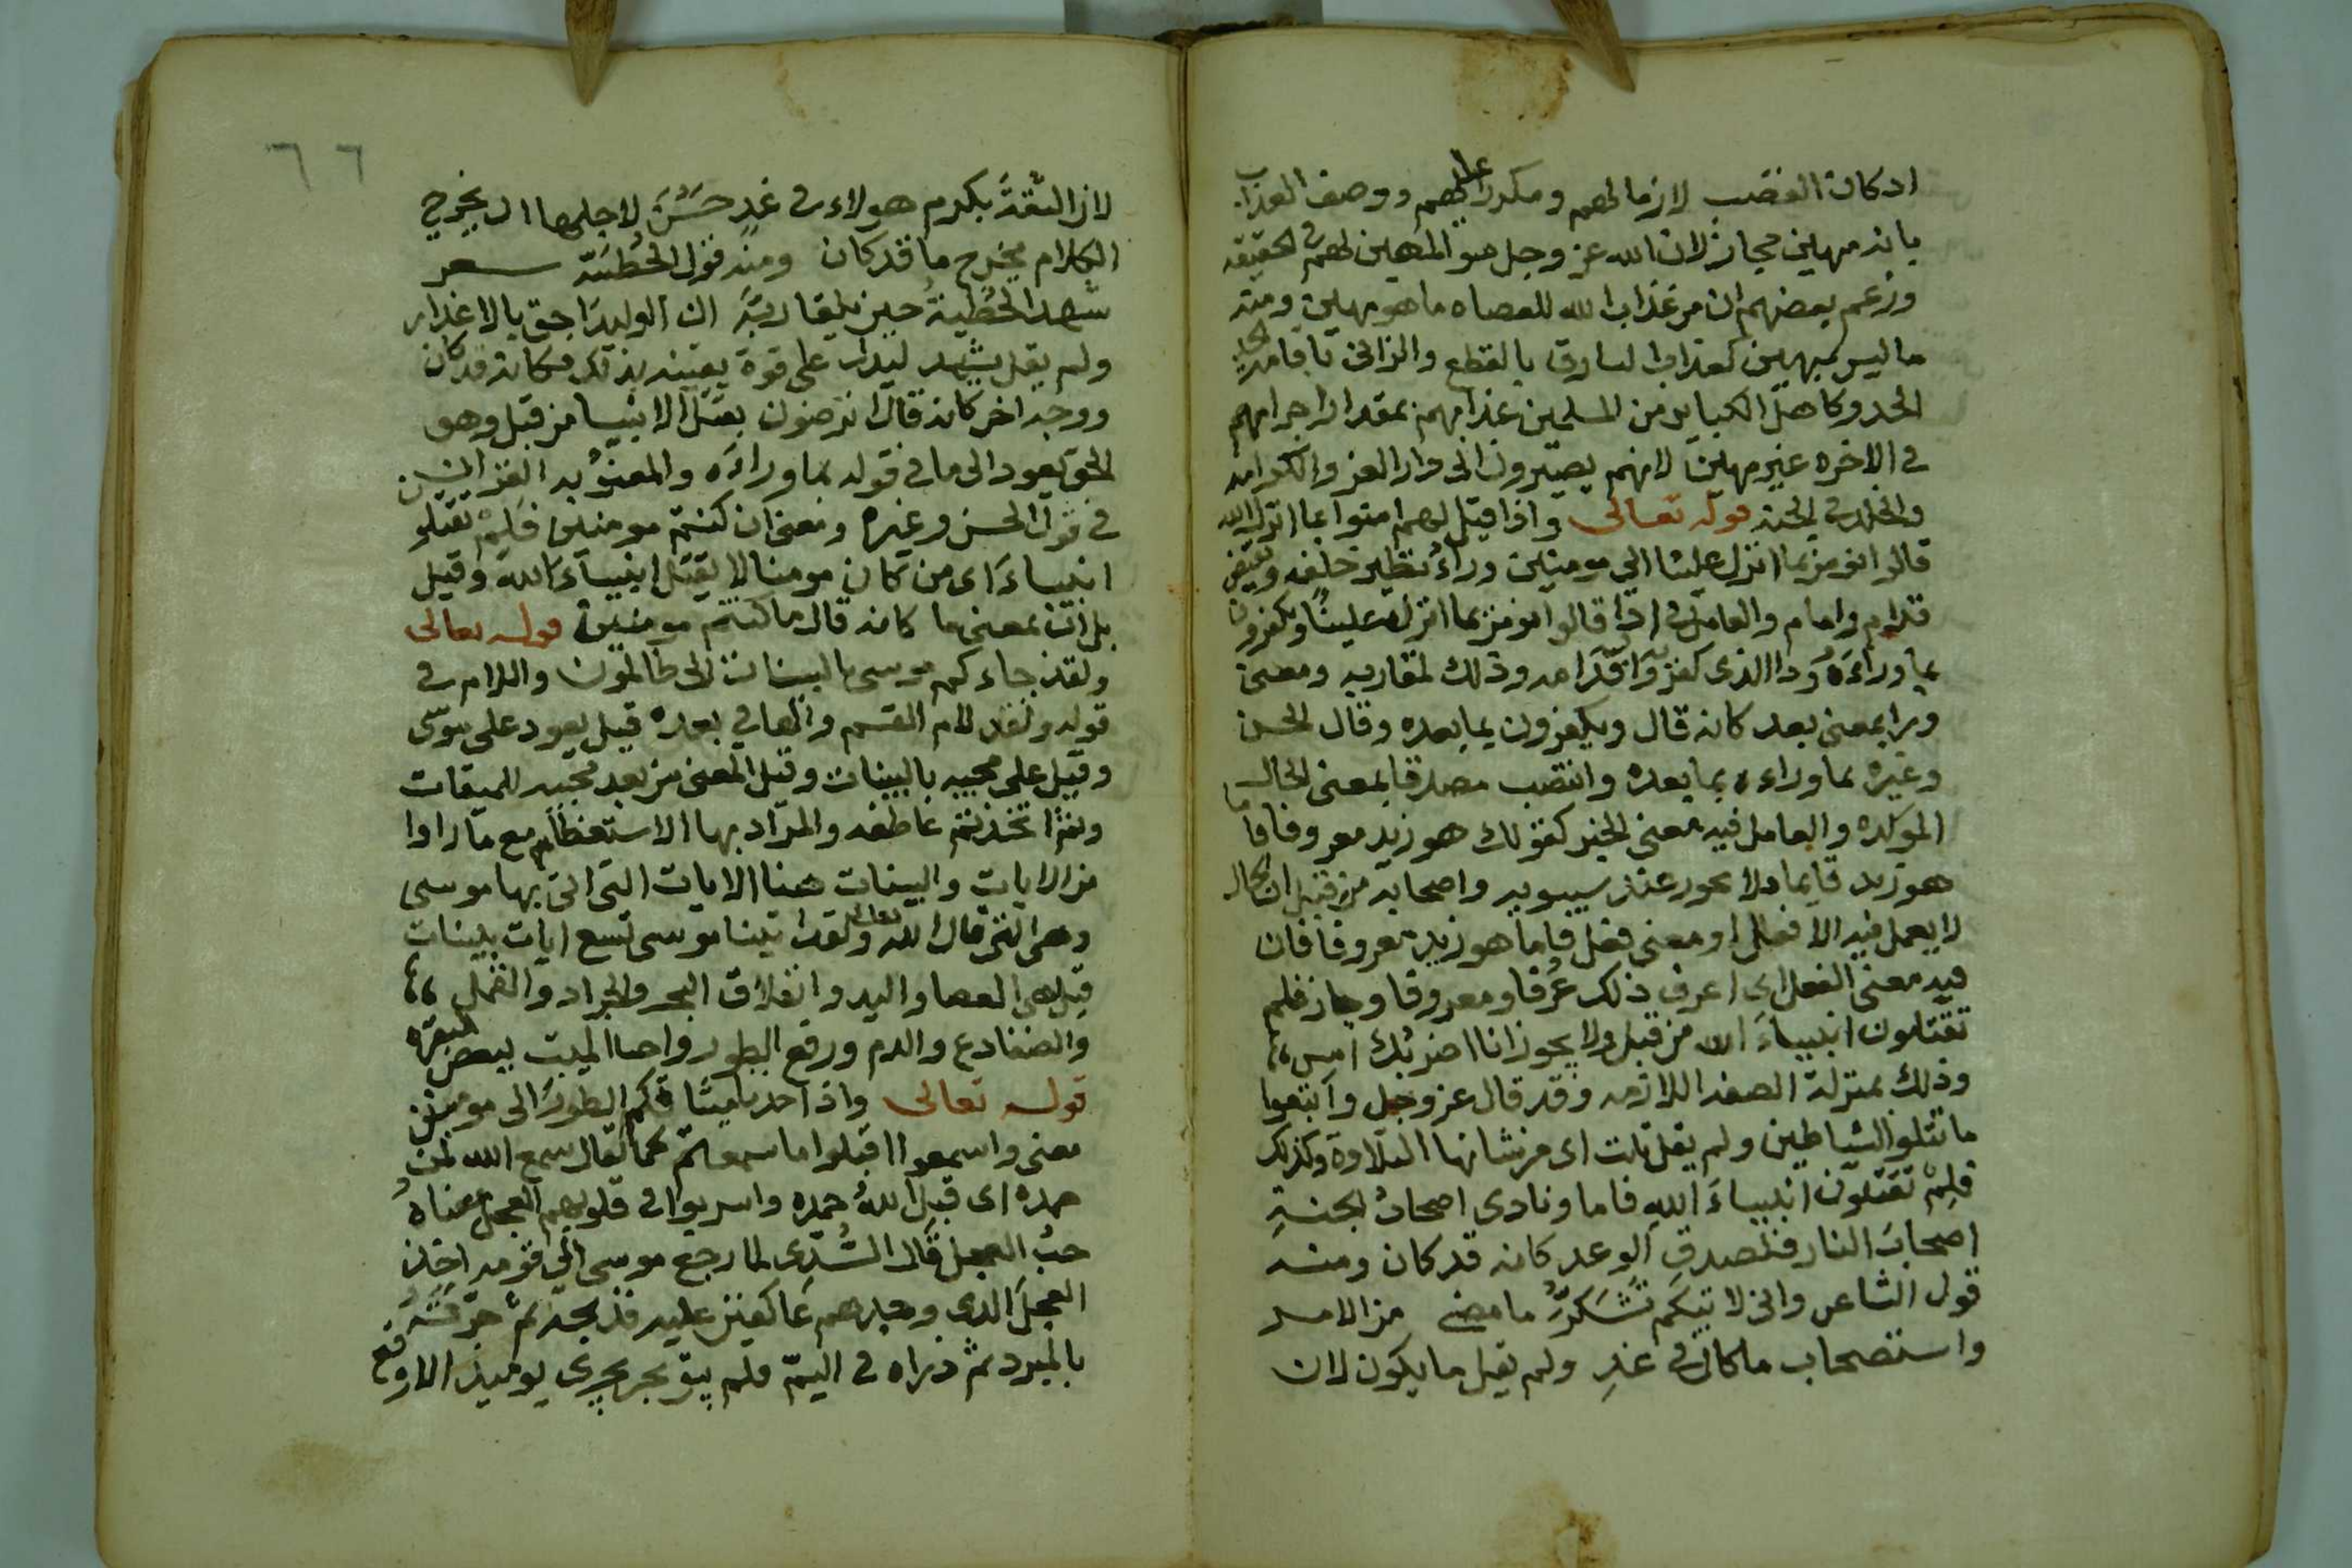 اذ كان الغضب لازما لهم ومكررا عليهم ووصف العذاب
بانه مهين مجاز لان الله عز وجل هو المهين لهم في الحقيقه
وزعم بعضهم ان من عذاب الله للعصاه ما هو مهين ومنه
ما ليس بمهين كعذاب السارق بالقطع والزاني باقامه
الحد وكاهل الكباير من المسلمين عذابهم بمقدار اجرامهم
في الاخره غير مهين لانهم يصيرون الى دار العز والكرامه
والخلد في الجنه قوله تعالى واذا قيل لهم امنوا بما انزل الله
قالوا نومن بما انزل علينا الى مومنين وراء نظير خلف ونقيض
قدام وامام والعامل في اذا قالوا نومن بما انزل علينا ويكفرون
بما وراءه وذا الذى كفروا قدامه وذلك لتقاربه ومعنى
ورا بمعنى بعد كانه قال ويكفرون بما بعده وقال الحسن
وغيره بما وراءه بما بعده وانتصب مصدقا بمعنى الحال
الموكده والعامل فيه معنى الخبر كقولك هو زيد معروفا فاما
هو زيد قايما فلا يجوز عند سيبويه واصحابه من قبل ان الحال
لا يعمل فيه الا فعل او معنى فعل فاما هو زيد معروفا فان
فيه معنى الفعل اى اعرف ذلك عرفا ومعروفا وجاز فلم
تقتلون انبيباء الله من قبل ولا يجوز انا اضربك امس
وذلك بمنزلة الصفه اللازمه وقد قال عز وجل واتبعوا
ما تتلوا الشياطين ولم يقل تلت اى من شانها التلاوة وكذلك
فلم تقتلون انبيباء الله فاما ونادى اصحاب الجنة
اصحاب النار فلصدق الوعد كانه قد كان ومنه
قول الشاعر وانى لاتيكم تشكر ما مضى من الامر
واستصحاب ما كان في غد ولم يقل ما يكون لان
٦٦
لان الثقة بكرم هولاء في غد حسن لاجلها ان يخرج
الكلام مخرج ما قد كان ومنه قول الحطيئة شعر
شهد الحطية حين يلقا ربه ان الوليد احق بالاعذار
ولم يقل يشهد ليدل على قوة يقينه بذلك فكانه قد كان
ووجه اخر كانه قال اترضون بقتل الانبيا من قبل وهو
الحق يعود الى ما في قوله بما وراءه والمعنى به القران
في قول الحسن وغيره ومعنى ان كنتم مومنين فلم تقتلو
انبيباء اى من كان مومنا لا يقتل انبيباء الله وقيل
بل ان بمعنى ما كانه قال ما كنتم مومنين قوله تعالى
ولقد جاءكم موسى بالبينات الى ظالمون واللام في
قوله ولقد لام القسم والها في بعده قيل يعود على موسى
وقيل على مجييه بالبينات وقيل المعنى من بعد مجييه للميقات
وثم اتخذتم عاطفه والمراد بها الاستعظام مع ما راوا
من الايات والبينات هنا الايات التى اتى بها موسى
وهى التى قال الله تعالى ولقد اتينا موسى تسع ايات بينات
قيل هى العصا واليد وانفلاق البحر والجراد والقمل
والضفادع والدم ورفع الطور واحيا الميت ببعض البقره
قوله تعالى واذ اخذنا ميثاقكم الطور الى مومنين
معنى واسمعوا اقبلوا ما سمعتم كما يقال سمع الله لمن
حمده اى قبل الله حمده واشربوا في قلوبهم العجل معناه
حب العجل قال السدى لما رجع موسى الى قومه اخذ
العجل الذى وجدهم عاكفين عليه فذبحه ثم حرقه
بالمبرد ثم ذراه في اليم فلم يبق بحر يجرى يوميذ الا وقع